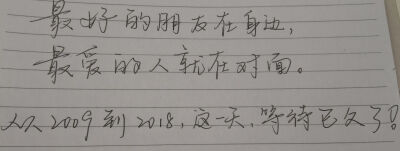 最好的朋友在身边,
最爱的人就在对面。
从2009到2018,这一天,等待已久了!